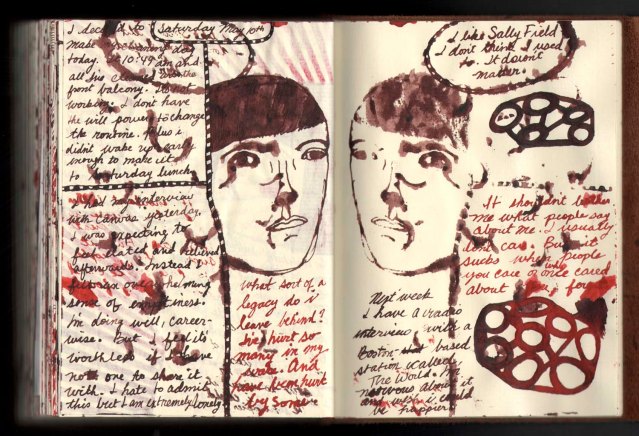 I decided to
make
today. It 10:49 am and
all his
front balcony. Its not
working. I don't have
the will power to change
the routine. Plus i
didn't wake up early
enough to make it
to Saturday lunch.
Saturday May 10th
day
I had my interview
with Canvas yesterday.
I was expecting to
feel elated and relieved
afterwards. Instead I
felt an overwhelming
sense of emptiness.
I'm doing well, career-
wise. But I feel its
worthless if I have
not one to share it
with. I hate to admit
this but I am extremely lonely.
What sort of a
legacy do i
leave behind?
I've hurt so
many in my
wake. And
have been hurt
by some
I like Sally Field
I don't think I used
to. It doesn't
matter.
It shouldn't bother
me what people say
about me. I usually
don't care. But it
sucks when people
you care or once cared
about
Next week
I have a radio
interview with a
Boston based
station called
The World. I'm
nervous about it
and wish i could
be happier